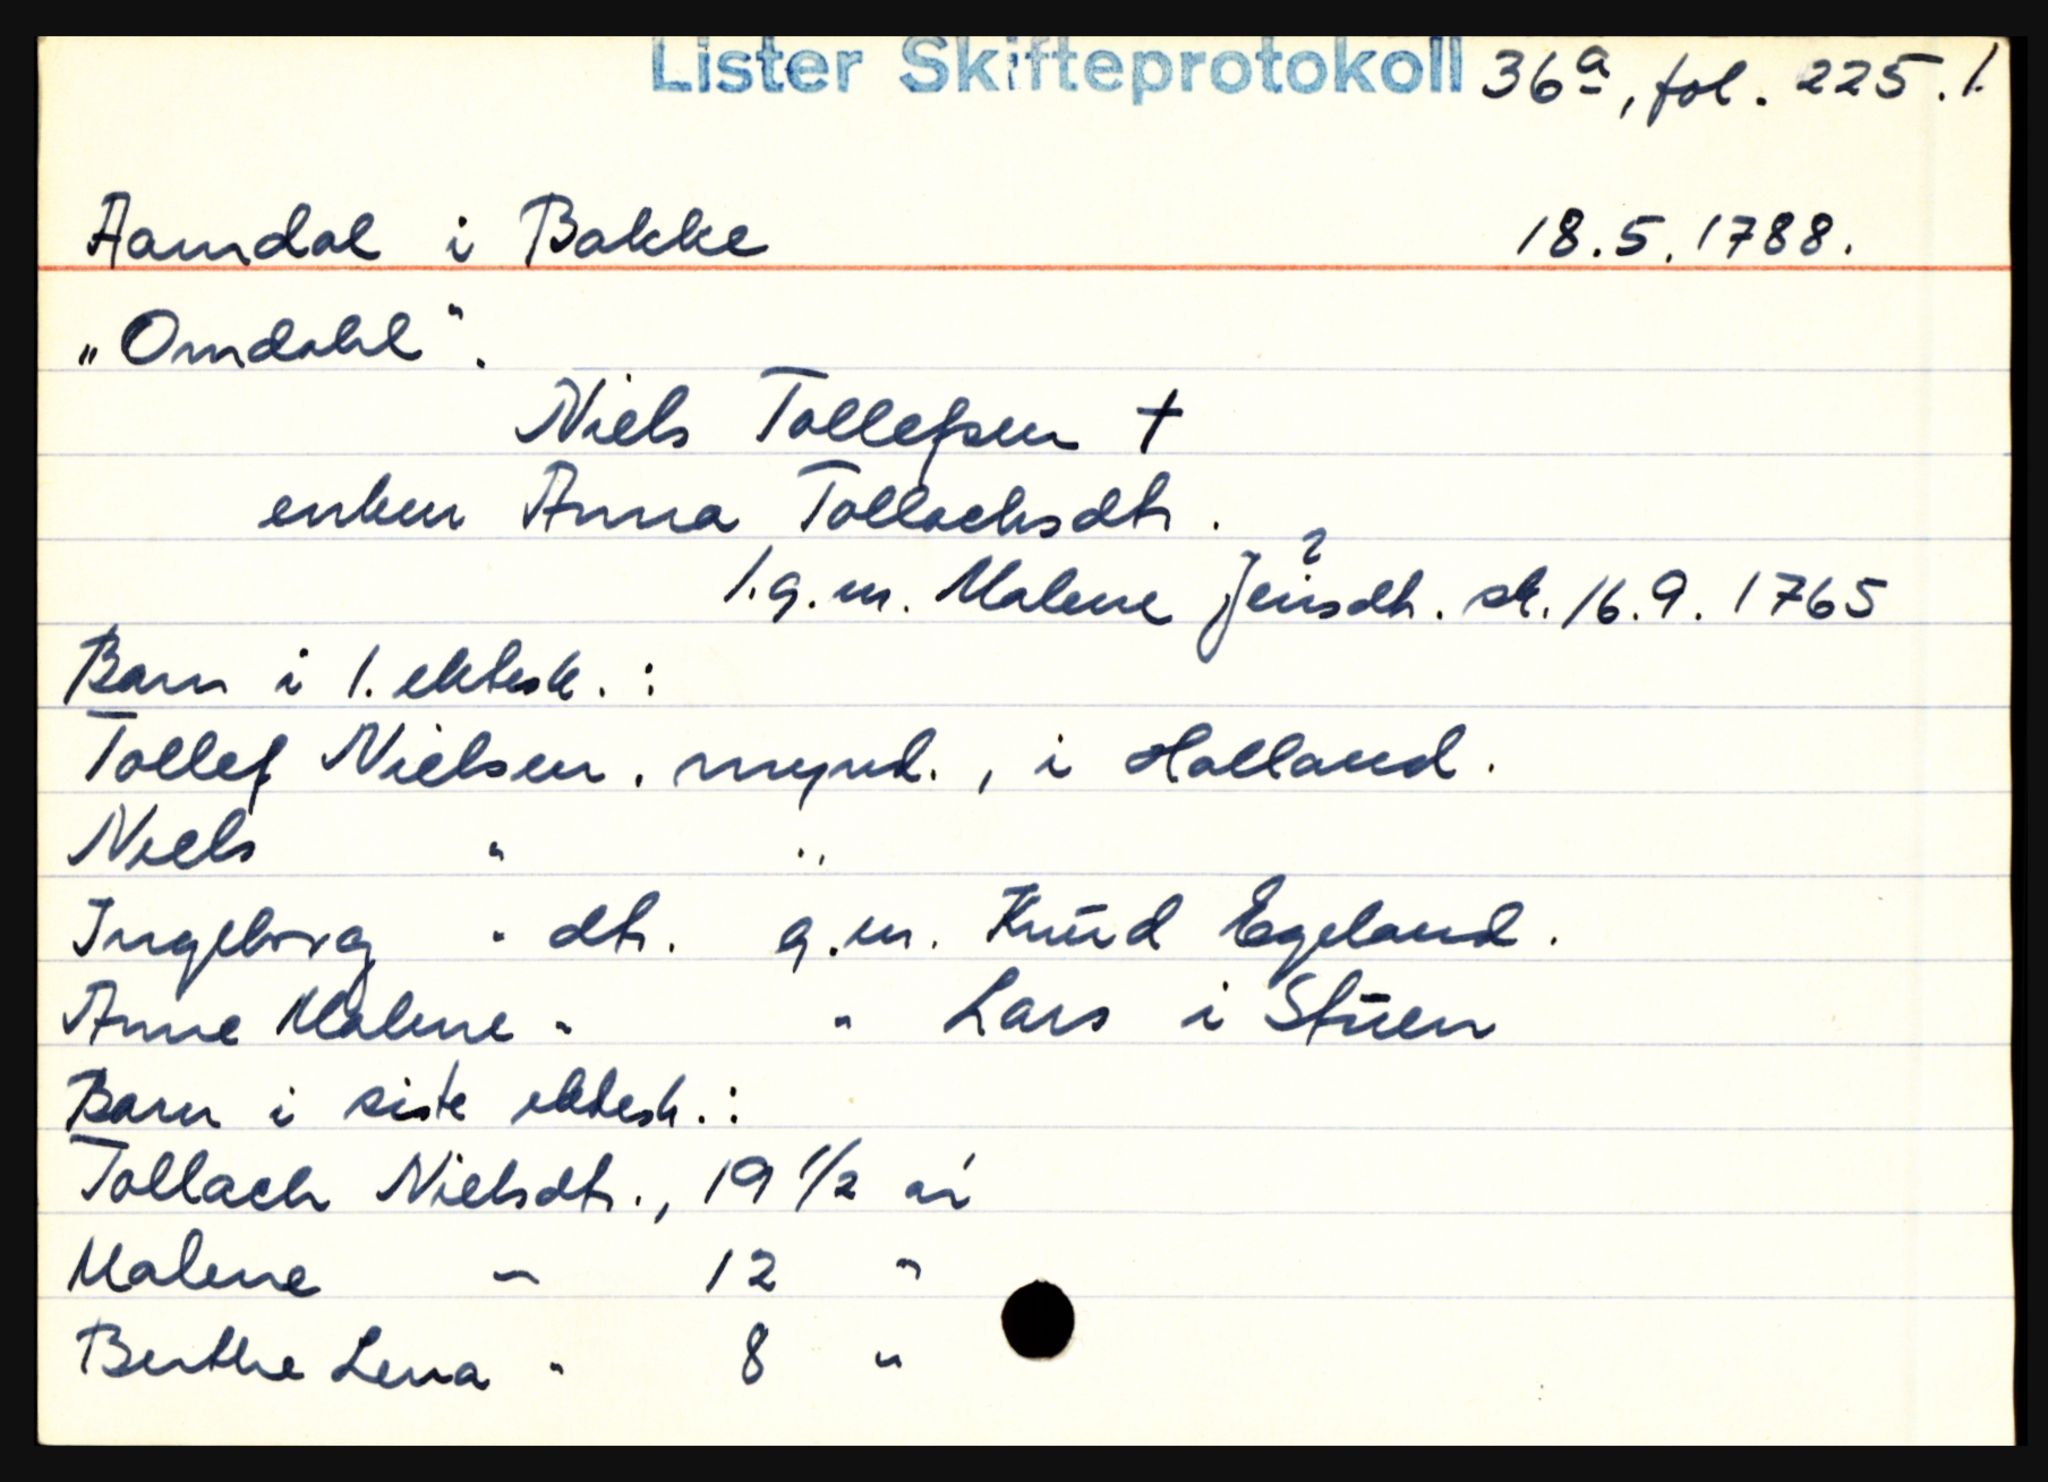 Lister Skifteprotokoll 36a, fol. 225. 1.
Aamdal i Bakke 18.5.1788.
„Omdahl".
Niels Tollefsen †
enken Anna Tollachsdtr.
1.g.m. Malene Jensdtr. ? sk. 16.9.1765
Barn i 1. ektesk. :
Tollef Nielsen. mynd., i Holland.
Niels " "
Ingeborg " dtr. g.m. Knud Egeland.
Anne Malene " " Lars i Stuen
Barn i siste ektesk. :
Tollach Nielsdtr., 19 1/2 år
Malene " 12 "
Berthe Lena " 8 "